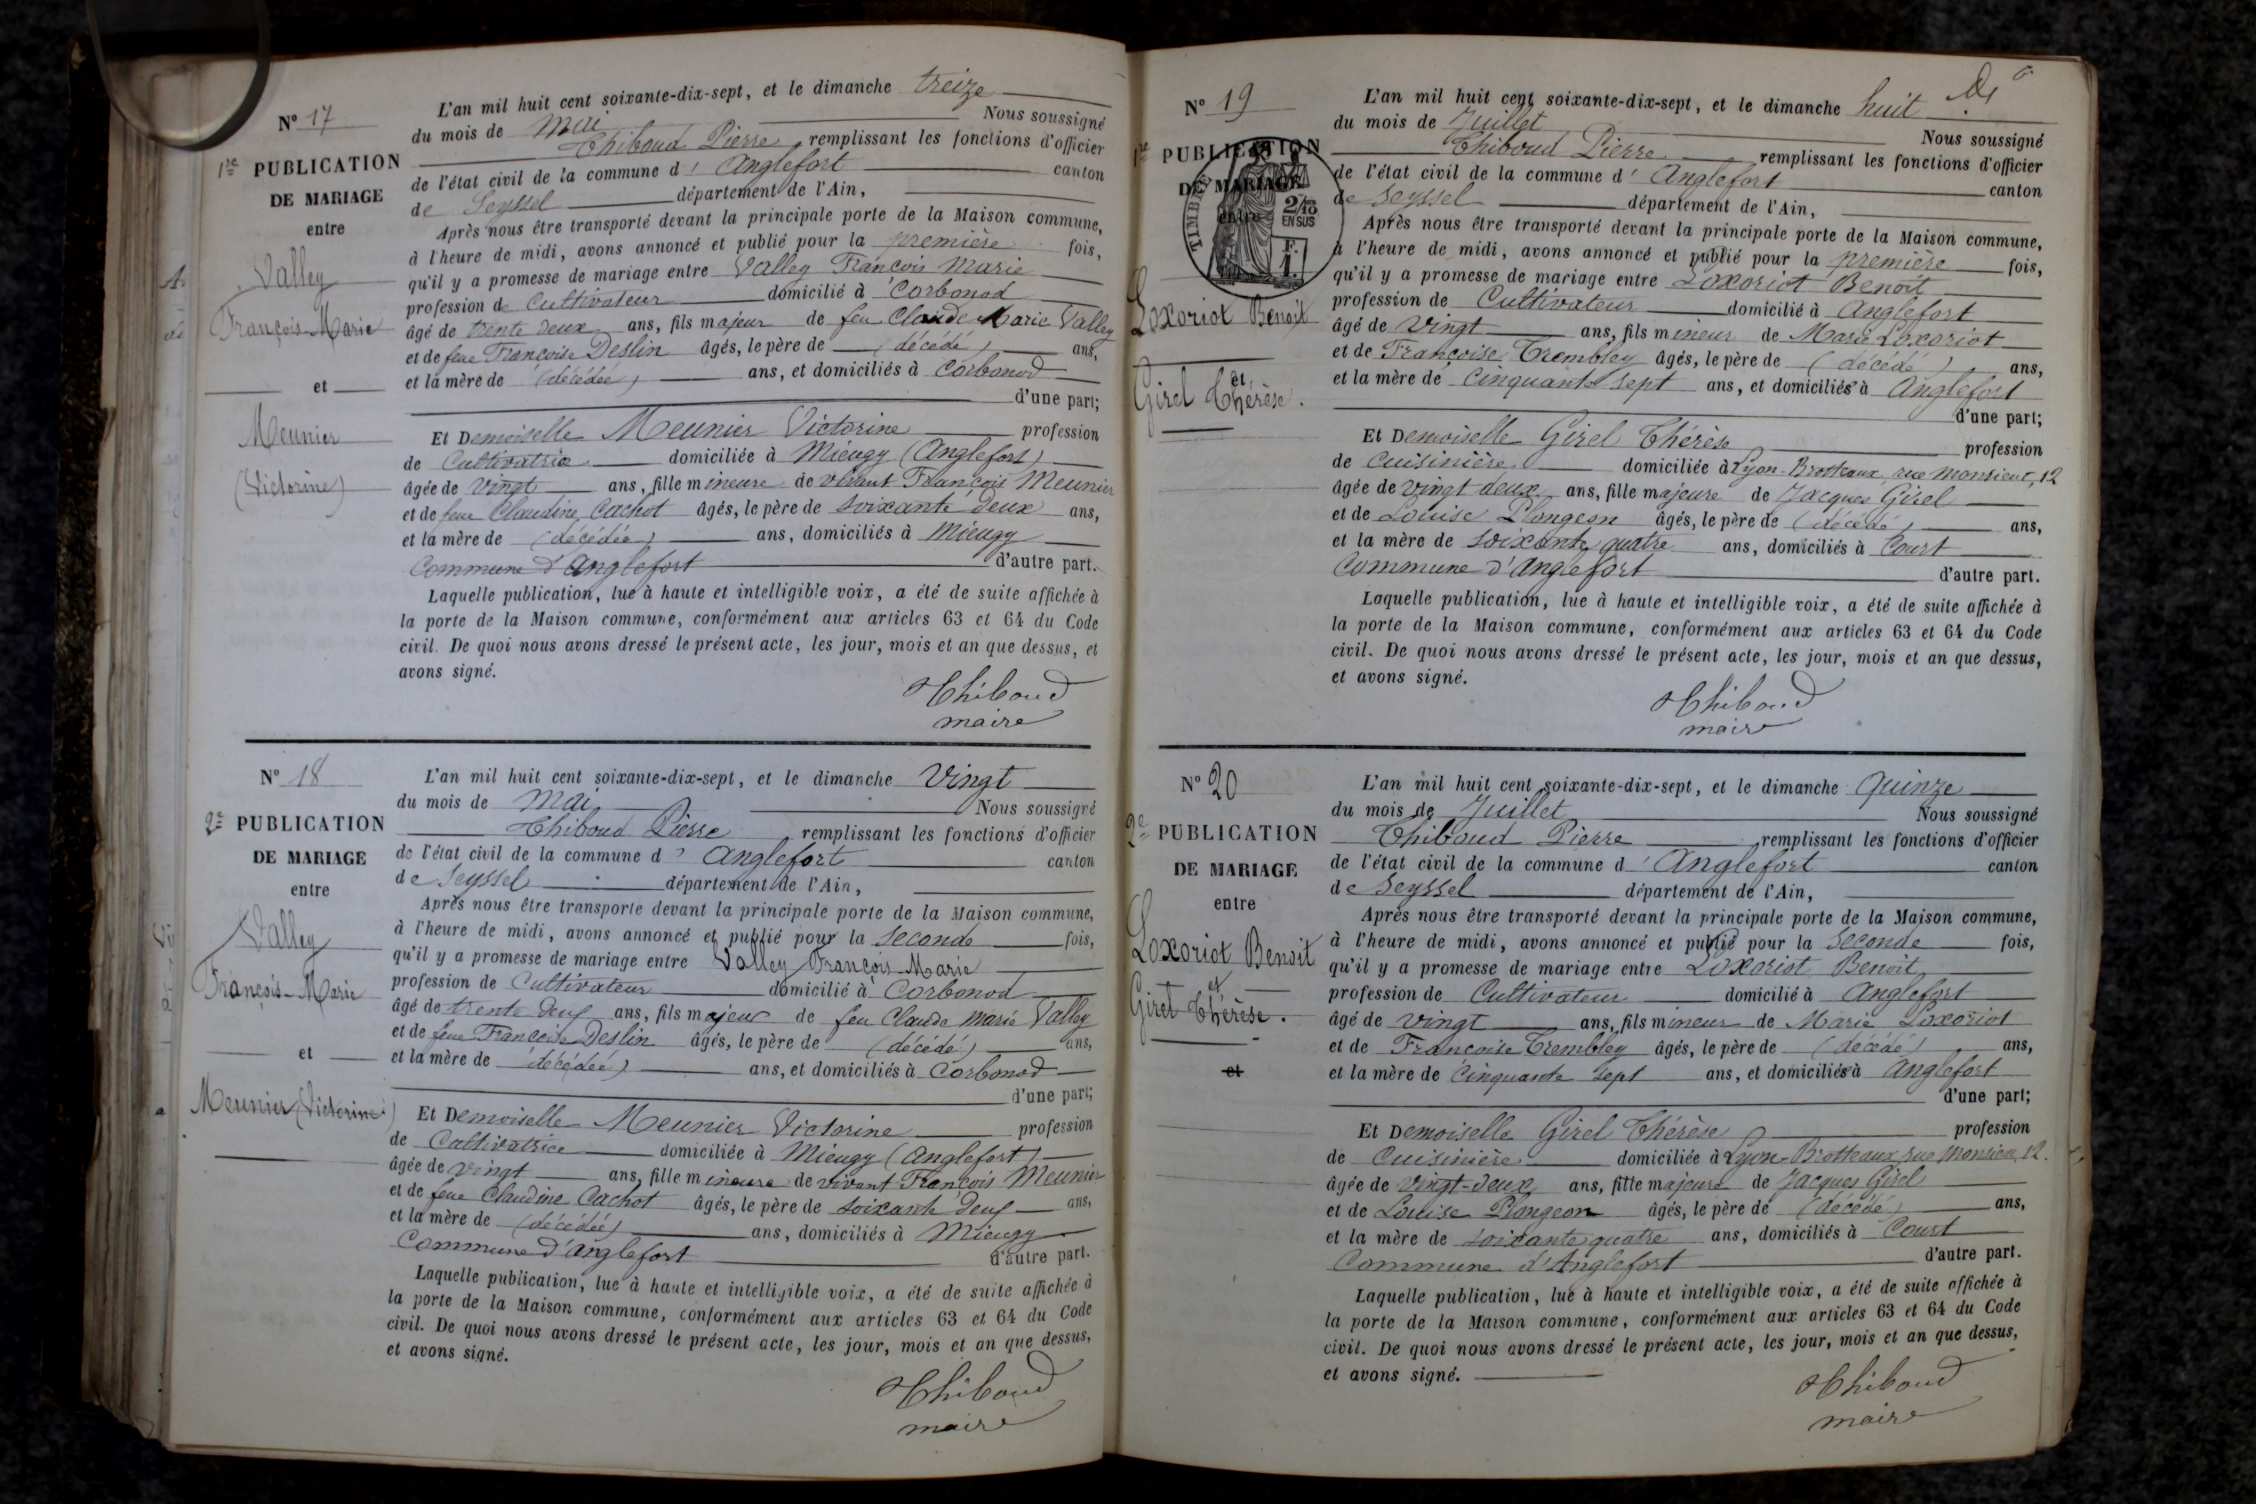 N° 17
1re PUBLICATION
DE MARIAGE
entre
Valley
François-Marie
et
Meunier
(Victorine)
L'an mil huit cent soixante-dix-sept, et le dimanche treize
du mois de Mai Nous soussigné
Thiboud Pierre remplissant les fonctions d'officier
de l'état civil de la commune d' Anglefort canton
de Seyssel département de l'Ain,
Après nous être transporté devant la principale porte de la Maison commune,
à l'heure de midi, avons annoncé et publié pour la première fois,
qu'il y a promesse de mariage entre Valley François Marie
profession de Cultivateur domicilié à Corbonod
âgé de trente deux ans, fils majeur de feu Claude Marie Valley
et de feue Françoise Deslin âgés, le père de (décédé) ans,
et la mère de (décédée) ans, et domiciliés à Corbonod
d'une part;
Et Demoiselle Meunier Victorine profession
de Cultivatrice domiciliée à Mieugy (Anglefort)
âgée de vingt ans, fille mineure de vivant François Meunier
et de feue Claudine Cachot âgés, le père de soixante deux ans,
et la mère de (décédée) ans, domiciliés à Mieugy
Commune d'Anglefort d'autre part.
Laquelle publication, lue à haute et intelligible voix, a été de suite affichée à
la porte de la Maison commune, conformément aux articles 63 et 64 du Code
civil. De quoi nous avons dressé le présent acte, les jour, mois et an que dessus, et
avons signé.
Thiboud
maire
N° 18
2e PUBLICATION
DE MARIAGE
entre
Valley
François-Marie
et
Meunier (Victorine)
L'an mil huit cent soixante-dix-sept, et le dimanche Vingt
du mois de Mai Nous soussigné
Thiboud Pierre remplissant les fonctions d'officier
de l'état civil de la commune d' Anglefort canton
de Seyssel département de l'Ain,
Après nous être transporte devant la principale porte de la Maison commune,
à l'heure de midi, avons annoncé et publié pour la seconde fois,
qu'il y a promesse de mariage entre Valley François-Marie
profession de Cultivateur domicilié à Corbonod
âgé de trente deux ans, fils majeur de feu Claude Marie Valley
et de feue Françoise Deslin âgés, le père de (décédé) ans,
et la mère de (décédée) ans, et domiciliés à Corbonod
d'une part;
Et Demoiselle Meunier Victorine profession
de Cultivatrice domiciliée à Mieugy (Anglefort)
âgée de vingt ans, fille mineure de vivant François Meunier
et de feue Claudine Cachot âgés, le père de soixante deux ans,
et la mère de (décédée) ans, domiciliés à Mieugy
Commune d'Anglefort d'autre part.
Laquelle publication, lue à haute et intelligible voix, a été de suite affichée à
la porte de la Maison commune, conformément aux articles 63 et 64 du Code
civil. De quoi nous avons dressé le présent acte, les jour, mois et an que dessus,
et avons signé.
Thiboud
maire
N° 19
1re PUBLICATION
DE MARIAGE
entre
TIMBRE
2/10
EN SUS
F.
1.
Loxoriot Benoit
et
Girel Thérèse.
L'an mil huit cent soixante-dix-sept, et le dimanche huit
du mois de Juillet Nous soussigné
Thiboud Pierre remplissant les fonctions d'officier
de l'état civil de la commune d' Anglefort canton
de Seyssel département de l'Ain,
Après nous être transporté devant la principale porte de la Maison commune,
à l'heure de midi, avons annoncé et publié pour la première fois,
qu'il y a promesse de mariage entre Loxoriot Benoit
profession de Cultivateur domicilié à Anglefort
âgé de vingt ans, fils mineur de Marie Loxoriot
et de Françoise Trembley âgés, le père de (décédé) ans,
et la mère de Cinquante sept ans, et domiciliés à Anglefort
d'une part;
Et Demoiselle Girel Thérèse profession
de Cuisinière domiciliée à Lyon-Brotteaux, rue Monsieur, 12
âgée de vingt deux ans, fille majeure de Jacques Girel
et de Louise Plongeon âgés, le père de (décédé) ans,
et la mère de soixante quatre ans, domiciliés à Court
Commune d'Anglefort d'autre part.
Laquelle publication, lue à haute et intelligible voix, a été de suite affichée à
la porte de la Maison commune, conformément aux articles 63 et 64 du Code
civil. De quoi nous avons dressé le présent acte, les jour, mois et an que dessus,
et avons signé.
Thiboud
maire
N° 20
2e PUBLICATION
DE MARIAGE
entre
Loxoriot Benoit
et
Girel Thérèse.
et
L'an mil huit cent soixante-dix-sept, et le dimanche quinze
du mois de Juillet Nous soussigné
Thiboud Pierre remplissant les fonctions d'officier
de l'état civil de la commune d' Anglefort canton
de Seyssel département de l'Ain,
Après nous être transporté devant la principale porte de la Maison commune,
à l'heure de midi, avons annoncé et publié pour la seconde fois,
qu'il y a promesse de mariage entre Loxoriot Benoit
profession de Cultivateur domicilié à Anglefort
âgé de vingt ans, fils mineur de Marie Loxoriot
et de Françoise Trembley âgés, le père de (décédé) ans,
et la mère de Cinquante sept ans, et domiciliés à Anglefort
d'une part;
Et Demoiselle Girel Thérèse profession
de Cuisinière domiciliée à Lyon-Brotteaux, rue Monsieur, 12.
âgée de vingt-deux ans, fille majeure de Jacques Girel
et de Louise Plongeon âgés, le père de (décédé) ans,
et la mère de soixante quatre ans, domiciliés à Court
Commune d'Anglefort d'autre part.
Laquelle publication, lue à haute et intelligible voix, a été de suite affichée à
la porte de la Maison commune, conformément aux articles 63 et 64 du Code
civil. De quoi nous avons dressé le présent acte, les jour, mois et an que dessus,
et avons signé.
Thiboud
maire